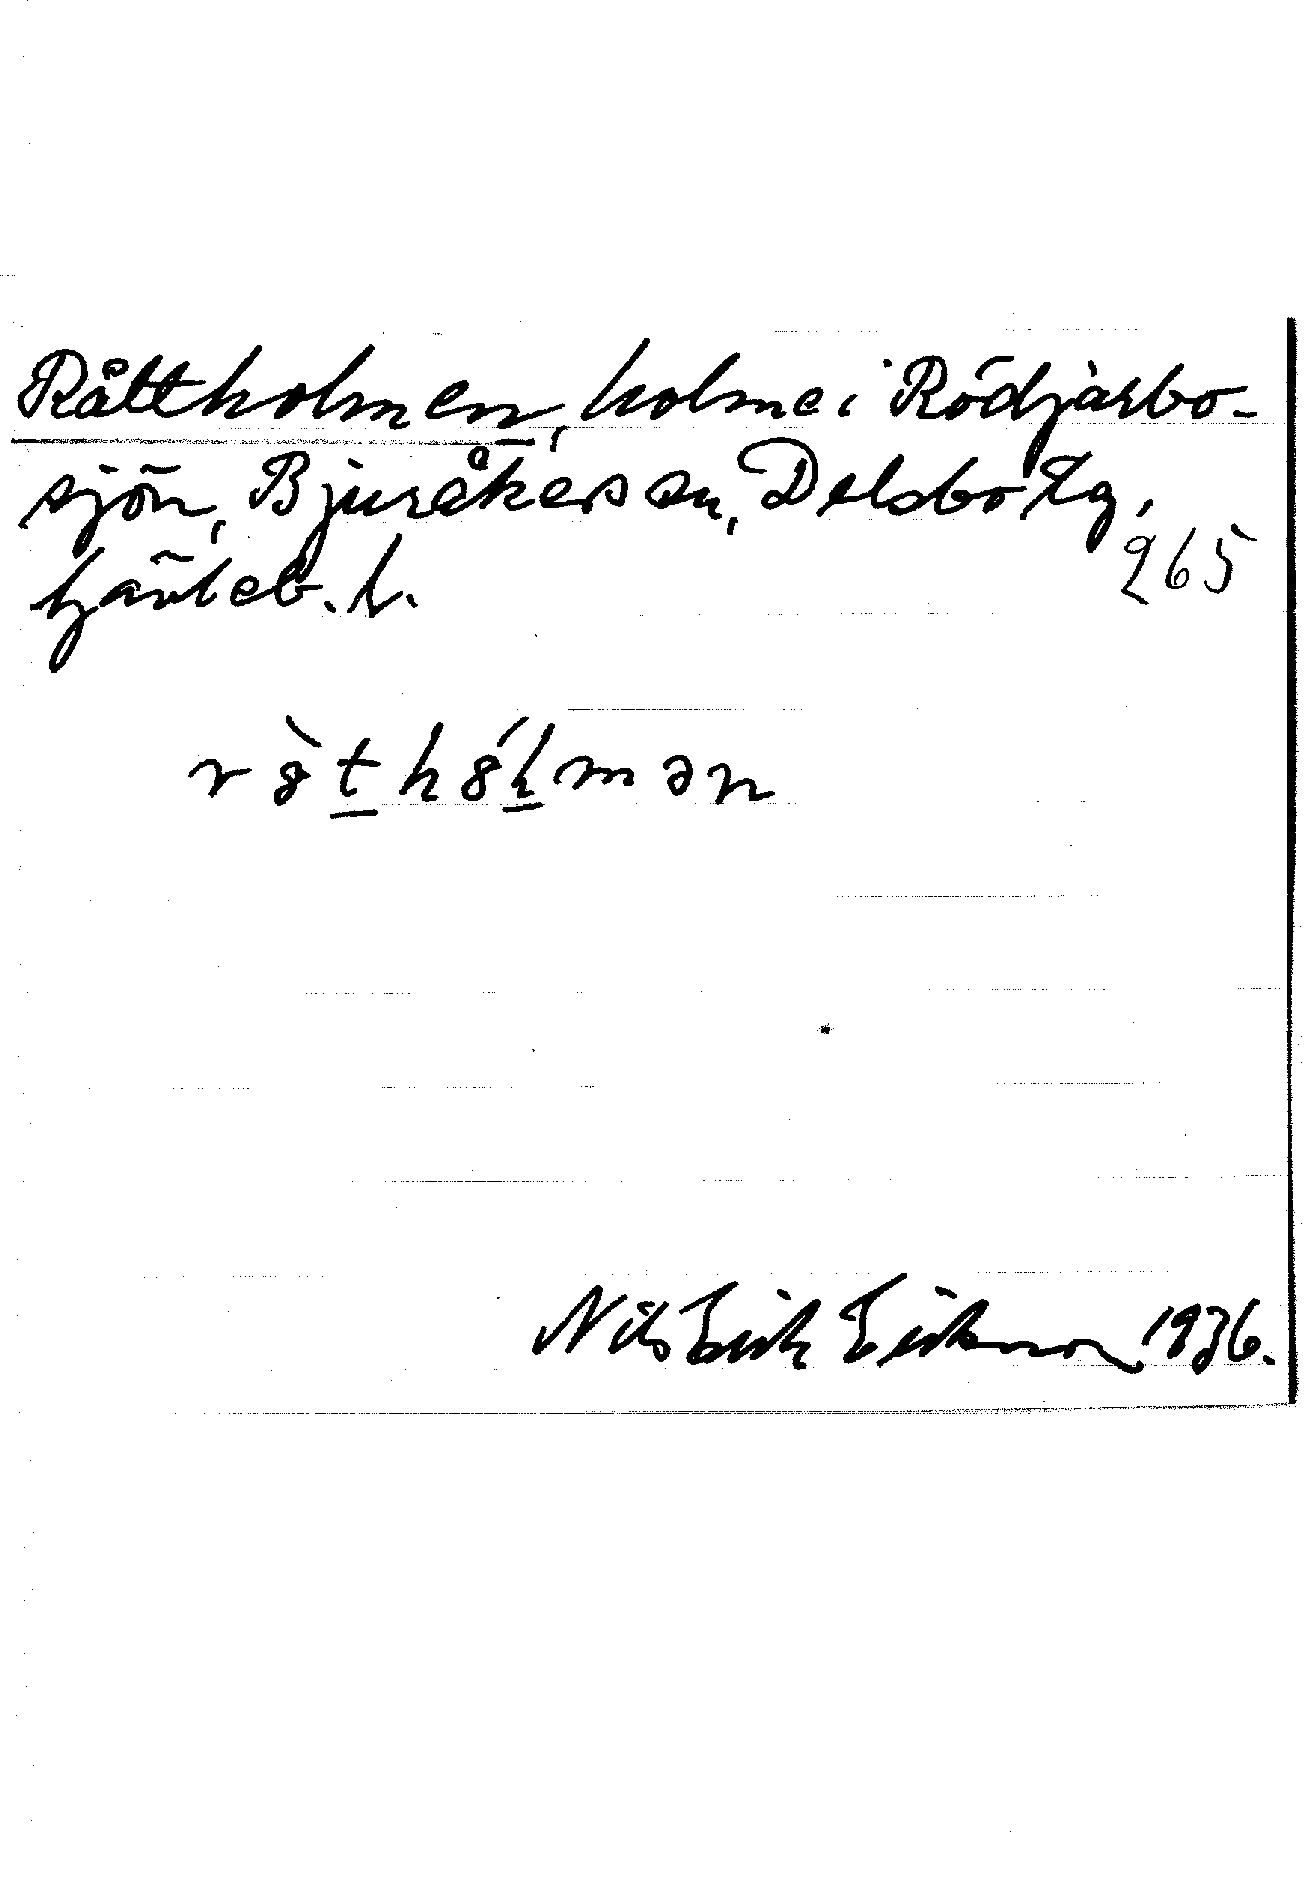 Råttholmen, holme i Rödjärbo-
sjön, Bjuråkers sn, Delsbo tg,
Gävleb. l.
265
Nils Erik Eriksson 1936.